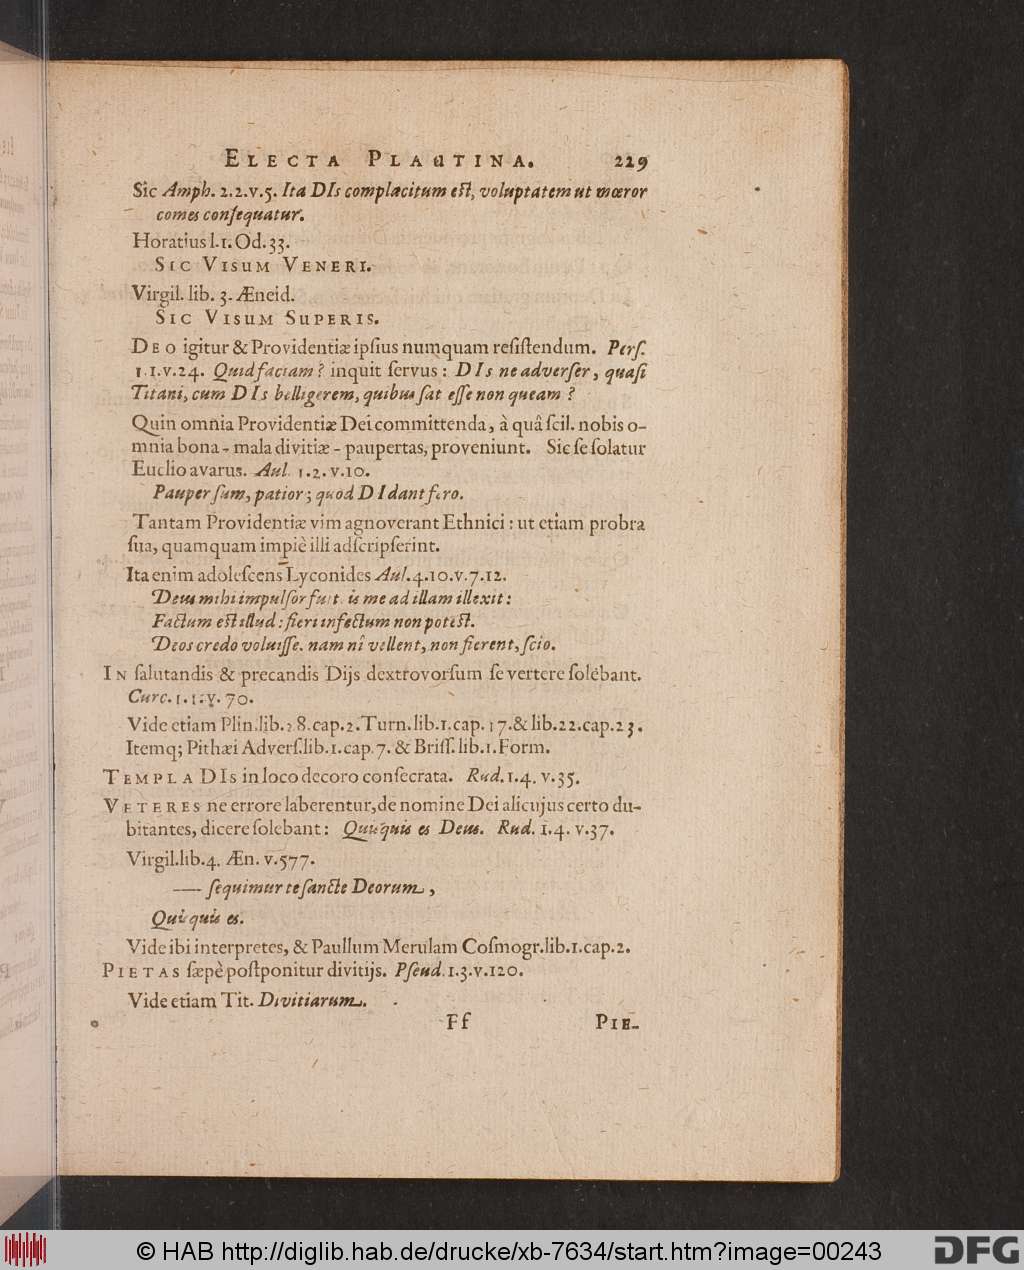 ELECTA PLAUTINA. 229
Sic Amph. 2.2.v.5. Ita DIs complacitum est, voluptatem ut mœror
comes consequatur.
Horatius l.1.Od.33.
SIC VISUM VENERI.
Virgil. lib. 3. Æneid.
SIC VISUM SUPERIS.
DEO igitur & Providentiæ ipsius numquam resistendum. Pers.
1.1.v.24. Quid faciam? inquit servus: DIs ne adverser, quasi
Titani, cum DIs belligerem, quibus sat esse non queam?
Quin omnia Providentiæ Dei committenda, à quâ scil. nobis o-
mnia bona - mala divitiæ - paupertas, proveniunt. Sic se solatur
Euclio avarus. Aul. 1.2.v.10.
Pauper sum, patior; quod DI dant fero.
Tantam Providentiæ vim agnoverant Ethnici: ut etiam probra
sua, quamquam impiè illi adscripserint.
Ita enim adolescens Lyconides Aul.4.10.v.7.12.
Deus mihi impulsor fuit. is me ad illam illexit:
Factum est illud: fieri infectum non potest.
Deos credo voluisse. nam nî vellent, non fierent, scio.
IN salutandis & precandis Dijs dextrovorsum se vertere solebant.
Curc. 1.1.v. 70.
Vide etiam Plin.lib.28.cap.2.Turn.lib.1.cap.17.& lib.22.cap.23.
Itemq; Pithæi Advers.lib.1.cap.7. & Briss.lib.1.Form.
TEMPLA DIs in loco decoro consecrata. Rud.1.4. v.35.
VETERES ne errore laberentur,de nomine Dei alicujus certo du-
bitantes, dicere solebant: Quisquis es Deus. Rud. 1.4. v.37.
Virgil.lib.4. Æn. v.577.
— sequimur te sancte Deorum,
Quisquis es.
Vide ibi interpretes, & Paullum Merulam Cosmogr.lib.1.cap.2.
PIETAS sæpè postponitur divitijs. Pseud.1.3.v.120.
Vide etiam Tit. Divitiarum.
Ff PIE-
© HAB http://diglib.hab.de/drucke/xb-7634/start.htm?image=00243
DFG